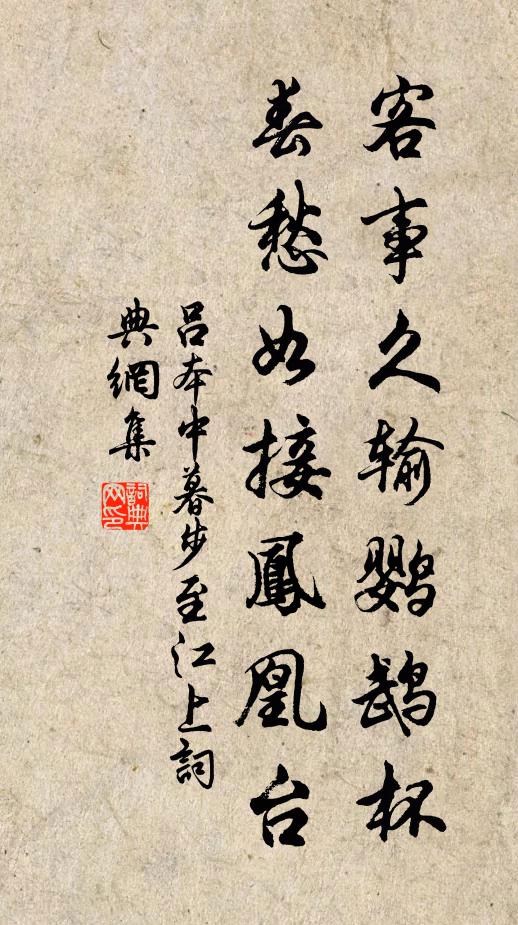 客事久输鹦鹉杯
春愁如接鳳凰台
吕本中暮步至江上詞
典網集
詞典
网印